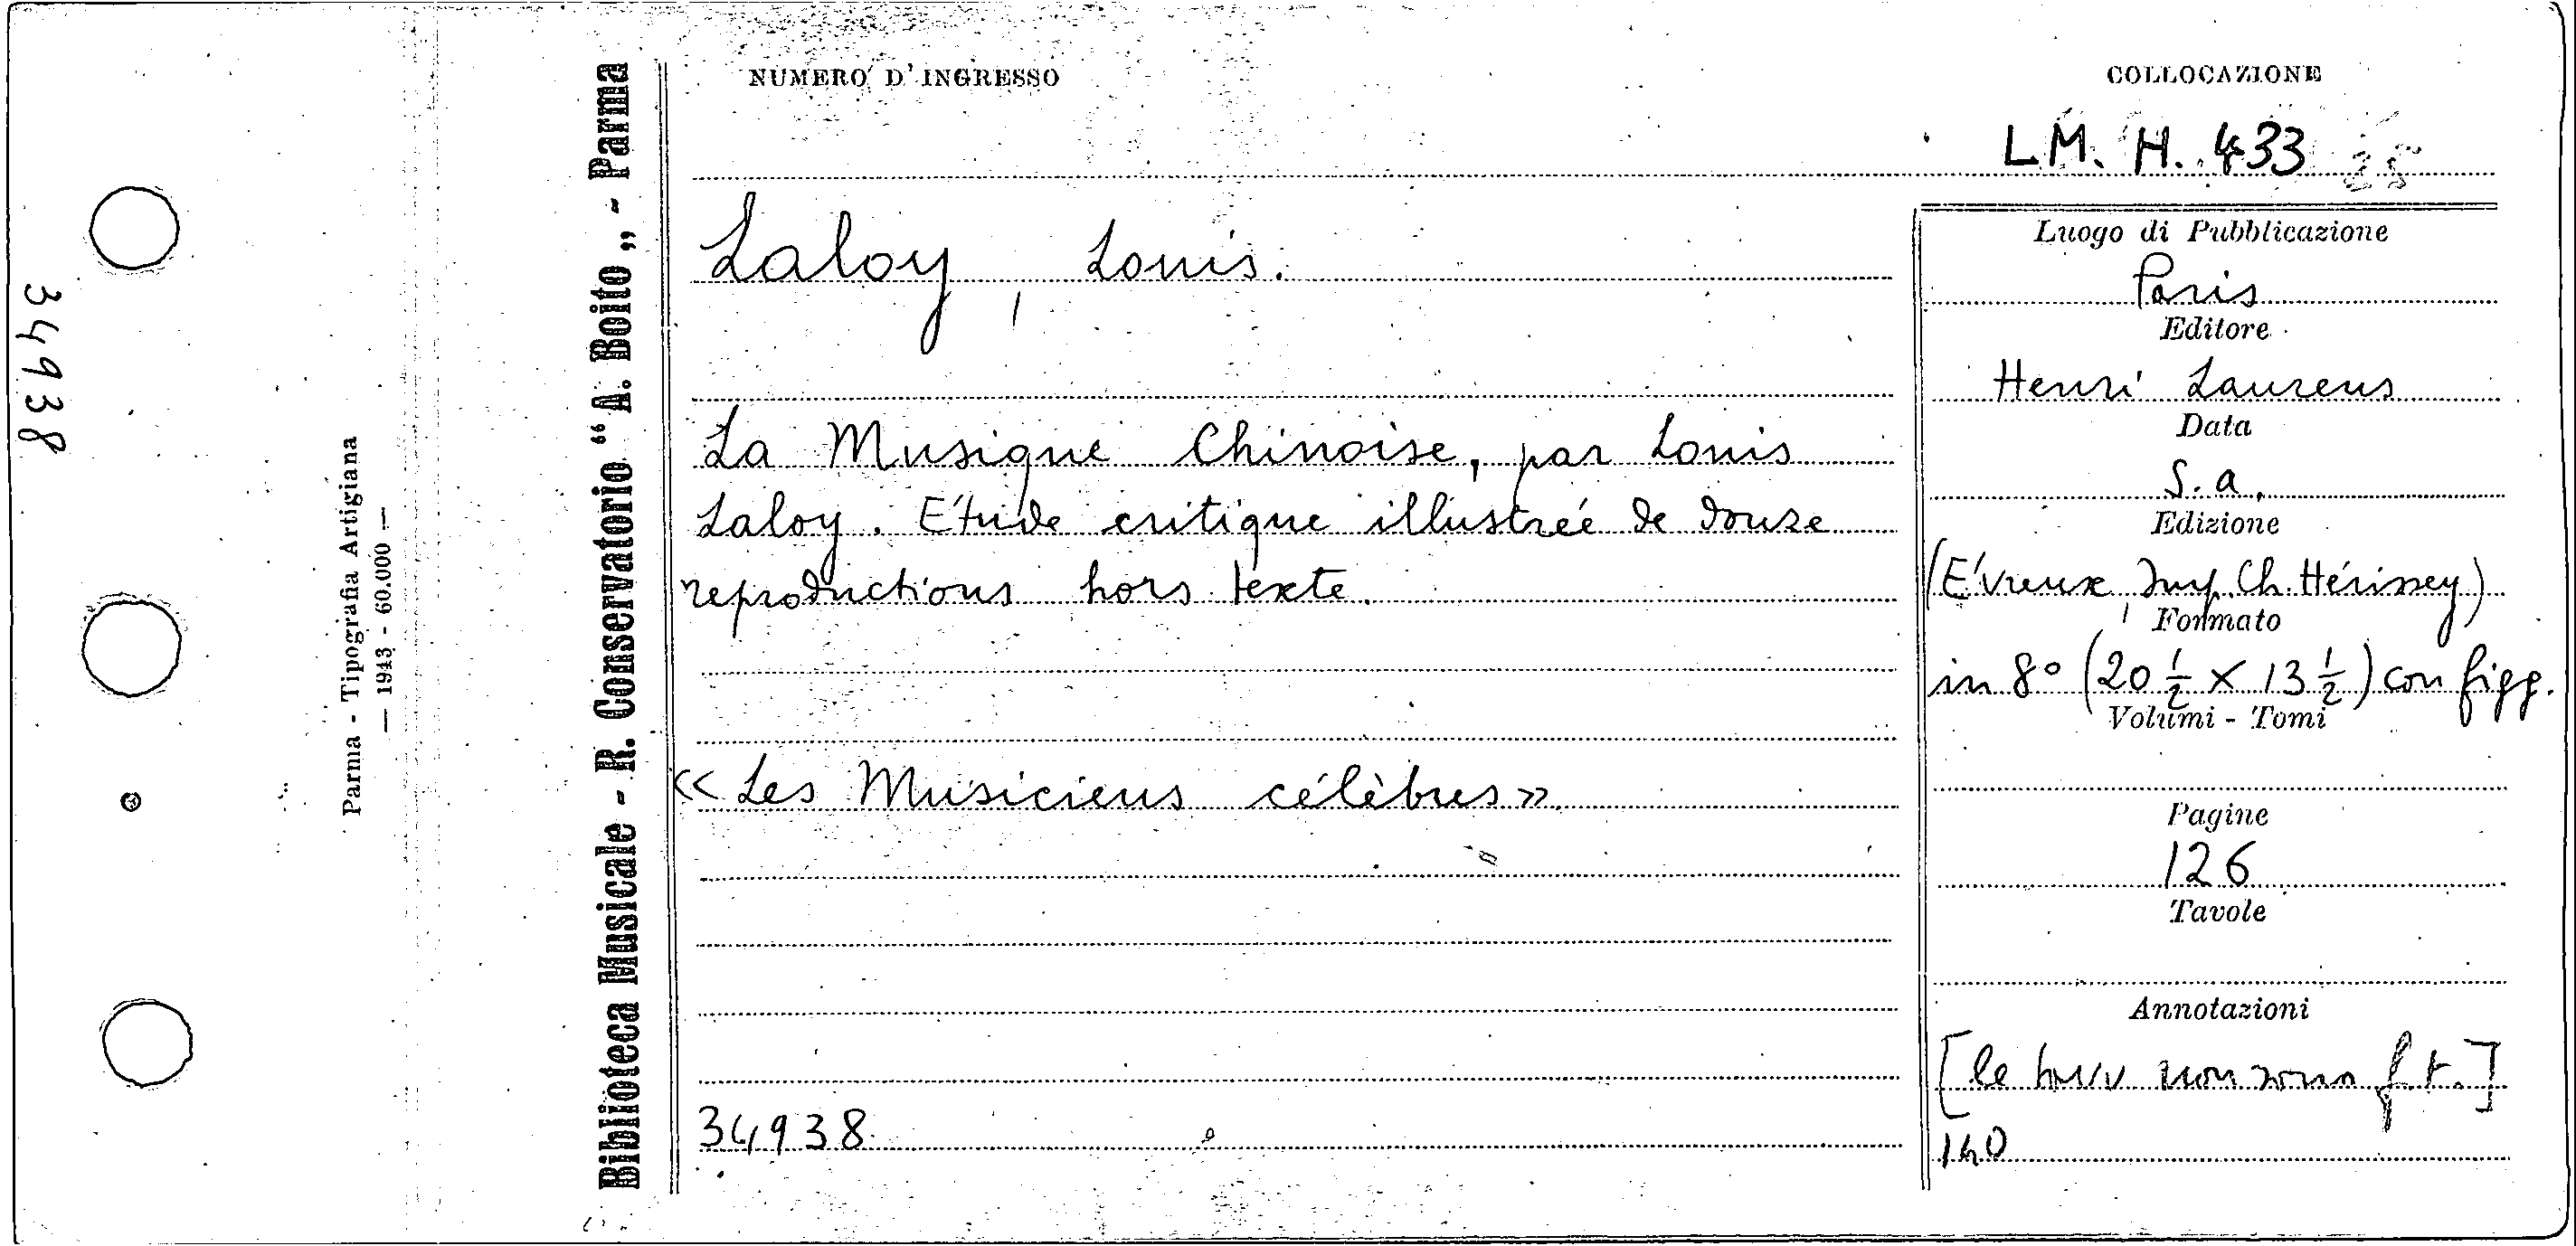 34938
Parma - Tipografia Artigiana
— 1943 - 60.000 —
Biblioteca Musicale - R. Conservatorio "A. Boito„ - Parma
NUMERO D'INGRESSO
COLLOCAZIONE
LM. H. 433
Laloy, Louis.
La Musique Chinoise, par Louis
Laloy. Étude critique illustreé de douze
reproductions hors texte.
«Les Musiciens célèbres».
34938
Luogo di Pubblicazione
Paris
Editore
Henri Laurens
Data
S. a.
Edizione
(Évreux, Imp. Ch. Hérissey)
Formato
in 8° (20 ½ × 13 ½) con figg.
Volumi - Tomi
Pagine
126
Tavole
Annotazioni
[le non sono f. t.]
140